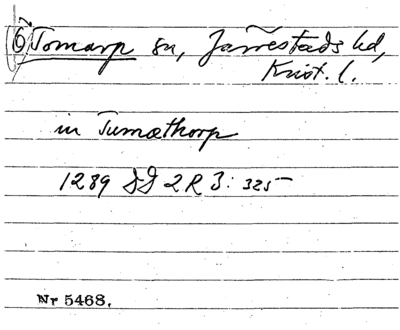 (Ö) Tomarp sn, Järrestads hd,
Krist. l.
in Tumæthorp
1289 DD 2 R 3: 325
Nr 5468.